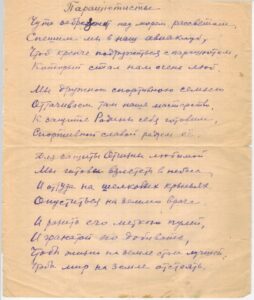 Парашютисты
Чуть забрезжит над морем рассветом,
Спешим мы в наш авиаклуб,
Чтоб крепче подружиться с парашютом,
Который стал нам всем люб.
Мы дружной спортивной семьёю
Оттачиваем там наше мастерство,
К защите Родины себя готовим,
Спортивной славой
Для защиты Отчизны любимой
Мы готовы взлететь в небеса
И оттуда на шелковых крыльях
Опуститься на землю врага
И разить его меткой пулей,
И гранатой его добивать,
Чтобы жизнь на земле стала лучшей,
Чтобы мир на земле отстоять.